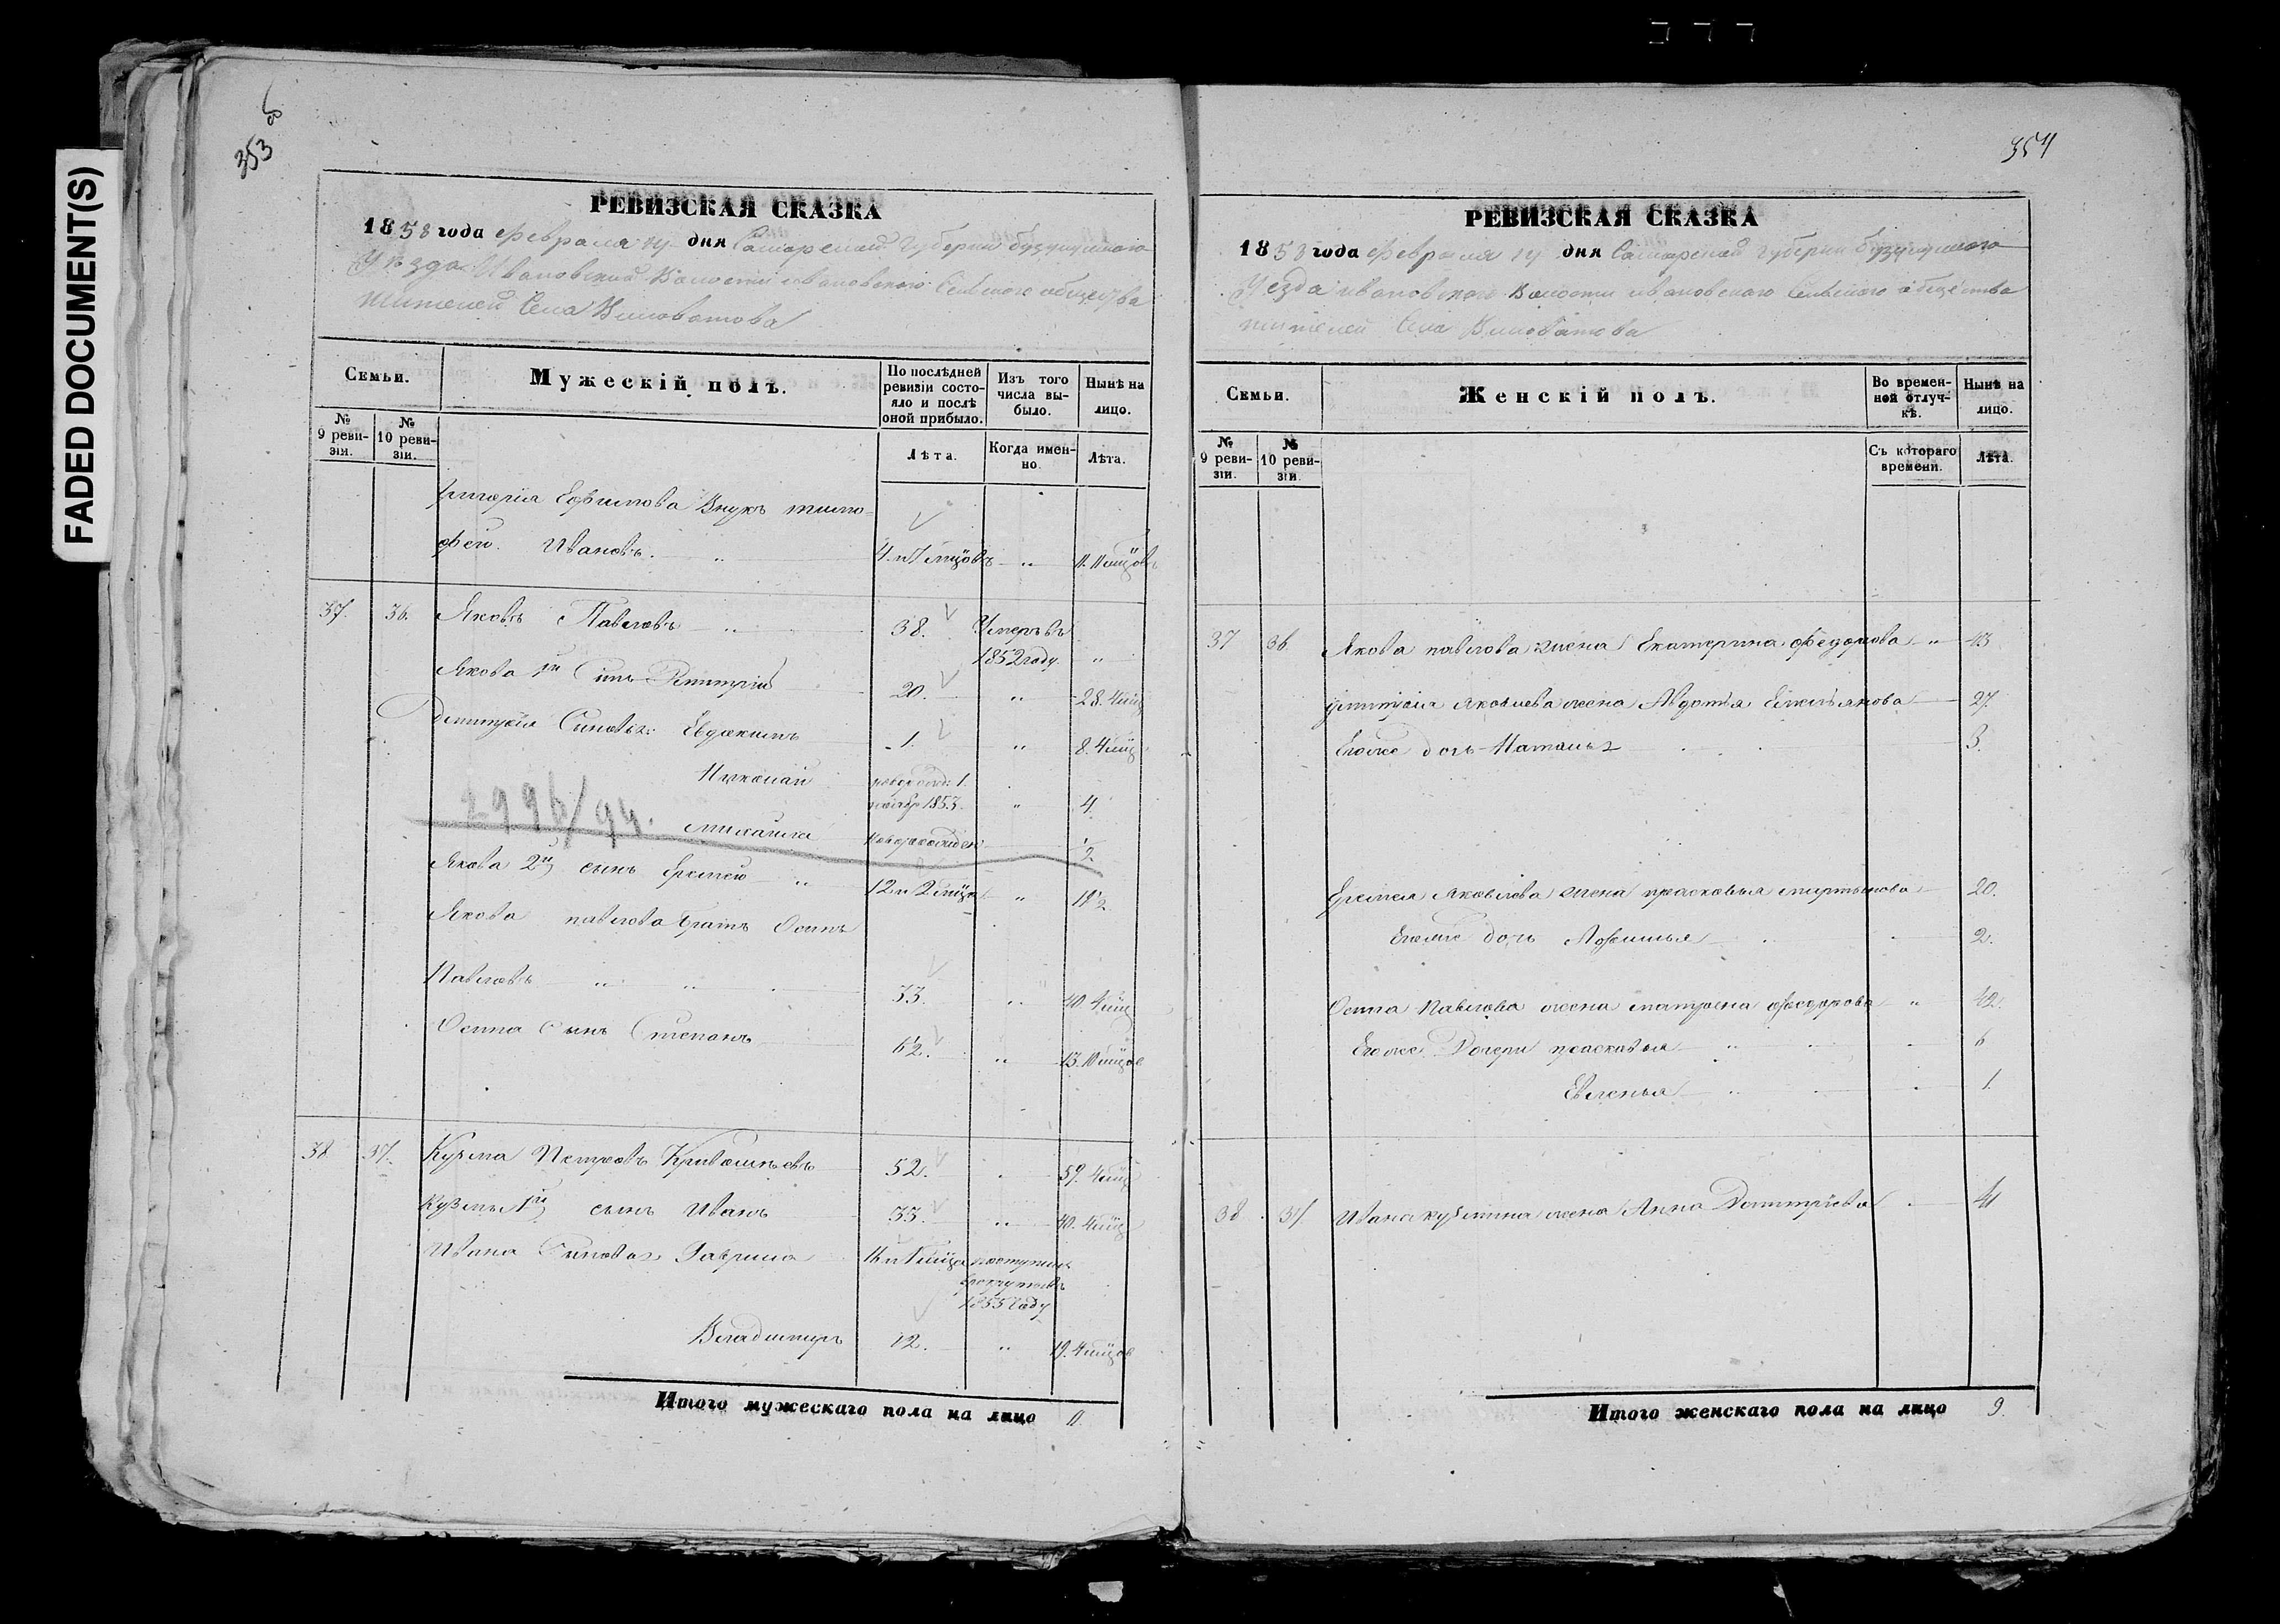 FADED DOCUMENT(S)
353 об
РЕВИЗСКАЯ СКАЗКА
1858 года февраля 14 дня Самарской губернии Бузулукского
Уѣзда Ивановской Волости ивановского Сельского общества
жителей Села Виловатова
Семьи.
Мужескій полъ.
По послѣдней ревизіи состояло и послѣ оной прибыло.
Изъ того числа выбыло.
Нынѣ на лицо.
№ 9 ревизіи.
№ 10 ревизіи.
Лѣта.
Когда именно.
Лѣта.
Григорія Ефимова Внукъ тимо-
фей Ивановъ 4 и 7 мцовъ " 11. 11 мцовъ
37. 36. Яковъ Павловъ " 38. Умеръ въ
1852 году "
Якова 1й Сынъ Дмитрій 20. " 28. 4 мц
Дмитрія Сыновья: Евдокимъ 1. " 8. 4 мц
Николай новорожд: 1.
ноябр 1853. " 4
2996/94.
михайла новорожден 1/2
Якова 2й сынъ Еремей " 12 и 2 мцa "
Якова павлова братъ Осипъ
Павловъ " " 33. " 40. 4 мц
Осипа Сынъ Степанъ 6 1/2. " 13. 10 мцов
38 37. Кузма Петровъ Кривошѣевъ 52. 59. 4 мц
Кузмы 1й сынъ Иванъ 33. " 40. 4 мц
Ивана Сыновья Гаврила поступилъ
врекруты въ
1855 году
Владимиръ 12. " 19. 4 мцов
Итого мужескаго пола на лицо 11.
354
РЕВИЗСКАЯ СКАЗКА
1858 года февраля 14 дня Самарской губернии Бузулукского
Уезда ивановской Волости ивановского Сельского общества
жителей Села Виловатова
Семьи.
Женскій полъ.
Во временной отлучкѣ.
Нынѣ на лицо.
№ 9 ревизіи.
№ 10 ревизіи.
Съ котораго времени.
Лѣта.
37 36. Якова павлова жена Екатерина федорова " 43
дмитрія яковлева жена Авдотья Емельянова 27.
Егоже дочь Наталья 3.
Еремея Яковлева жена прасковья мартынова 20.
Егоже дочь Афимья 2.
Осипа Павлова жена матрена федорова " 42.
Егоже Дочери прасковья " 6
Евленья " 1.
38 37. Ивана кузмина жена Анна Дмитріева 41
Итого женскаго пола на лицо 9.